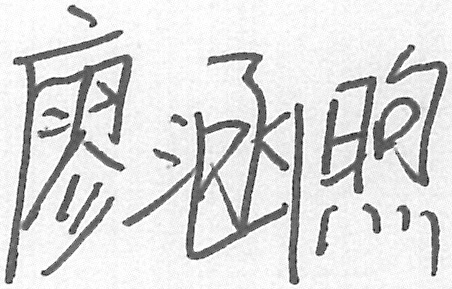 廖涵煦